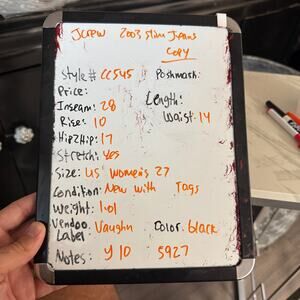 JCREW 2003 Slim Jeans
Copy
Style # CC545 Poshmark:
Price:
Inseam: 28 Length:
Rise: 10 Waist: 14
Hip2Hip: 17
Stretch: Yes
Size: US Women's 27
Condition: New with Tags
Weight: 1.01
Vendoo Label: Vaughn Color: black
Notes: Y10 5927